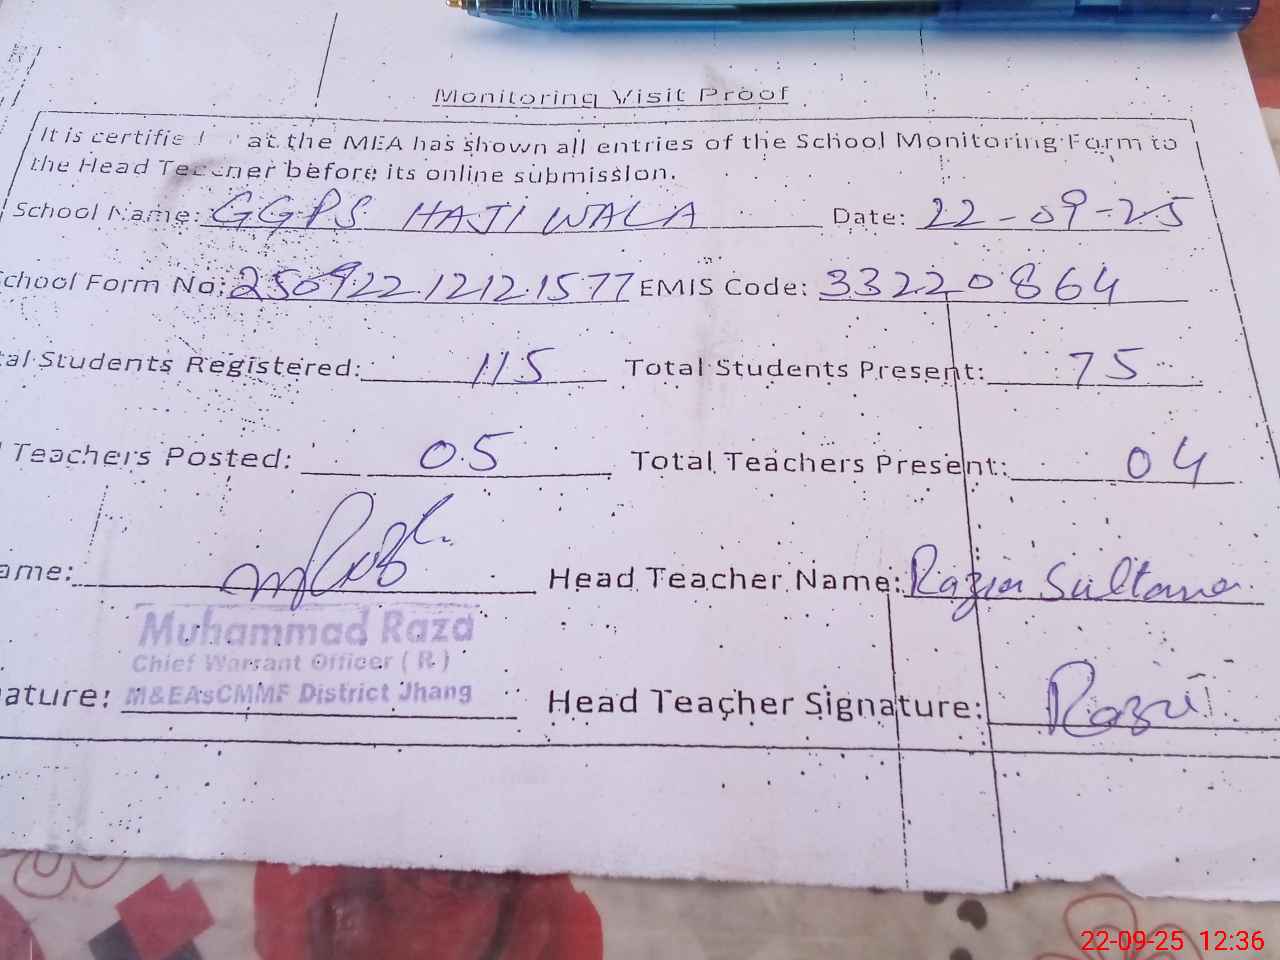 Monitoring Visit Proof
It is certifie at the MEA has shown all entries of the School Monitoring Form to
the Head Teacher before its online submission.
School Name: GGPS HAJI WALA Date: 22-09-25
chool Form No: 250922.1212.1577 EMIS Code: 33220864
tal Students Registered: 115 Total Students Present: 75
Teachers Posted: 05 Total Teachers Present: 04
ame: Head Teacher Name: Razia Sultana
Muhammad Raza
Chief Warrant Officer ( R )
M&EAsCMMF District Jhang
ature: Head Teacher Signature: Razia
22-09-25 12:36